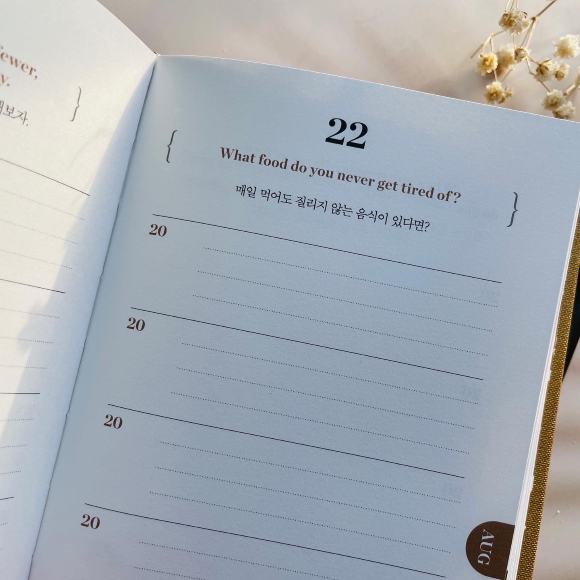 ewer,
y.
해보자.
22
What food do you never get tired of?
매일 먹어도 질리지 않는 음식이 있다면?
20
20
20
20
AUG